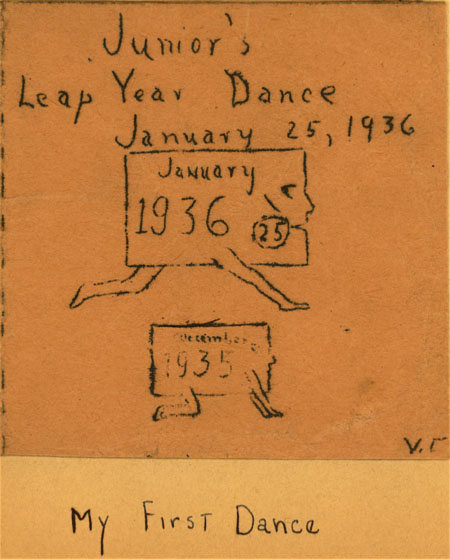 Junior's
Leap Year Dance
January 25, 1936
January
1936
25
December
1935
My First Dance